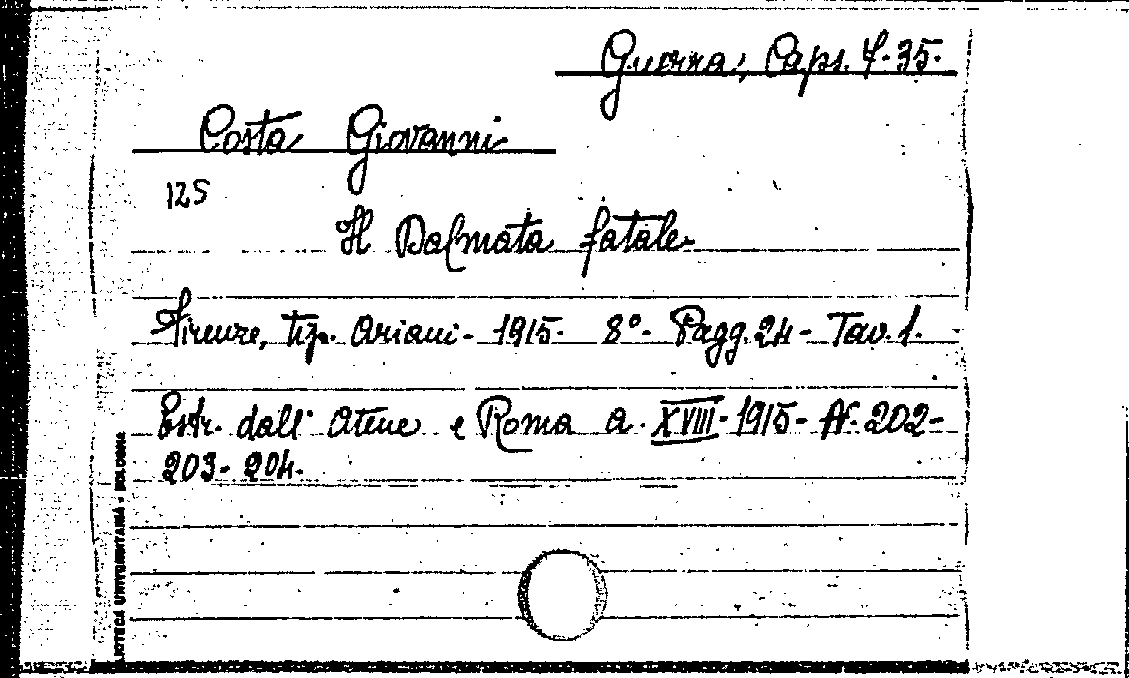 Guerra; Caps. Y. 35.
Costa Giovanni
125
Il Dalmata fatale
Firenze, tip. Ariani - 1915 - 8° - Pagg. 24 - Tav. 1.
Estr. dall' Atene e Roma a. XVIII - 1915 - N. 202-
203 - 204.
BIBLIOTECA UNIVERSITARIA - BOLOGNA